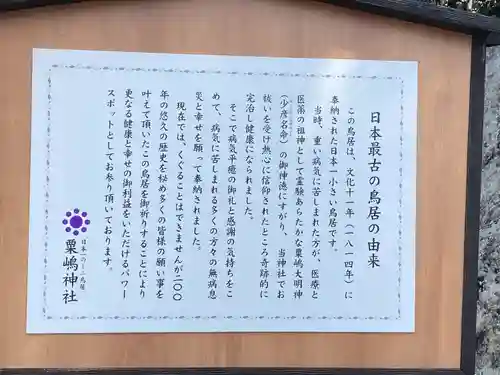 日本最古の鳥居の由来
この鳥居は、文化十一年（一八一四年）に
奉納された日本一小さい鳥居です。
当時、重い病気に苦しまれた方が、医療と
医薬の祖神として霊験あらたかな粟嶋大明神
（少彦名命）の御神徳にすがり、当神社でお
祓いを受け熱心に信仰されたところ奇跡的に
完治し健康になられました。
そこで病気平癒の御礼と感謝の気持ちをこ
めて、病気に苦しまれる多くの方々の無病息
災と幸せを願って奉納されました。
現在では、くぐることはできませんが二〇〇
年の悠久の歴史を秘め多くの皆様の願い事を
叶えて頂いたこの鳥居を御祈りすることにより
更なる健康と幸せの御利益をいただけるパワー
スポットとしてお参り頂いております。
粟嶋神社